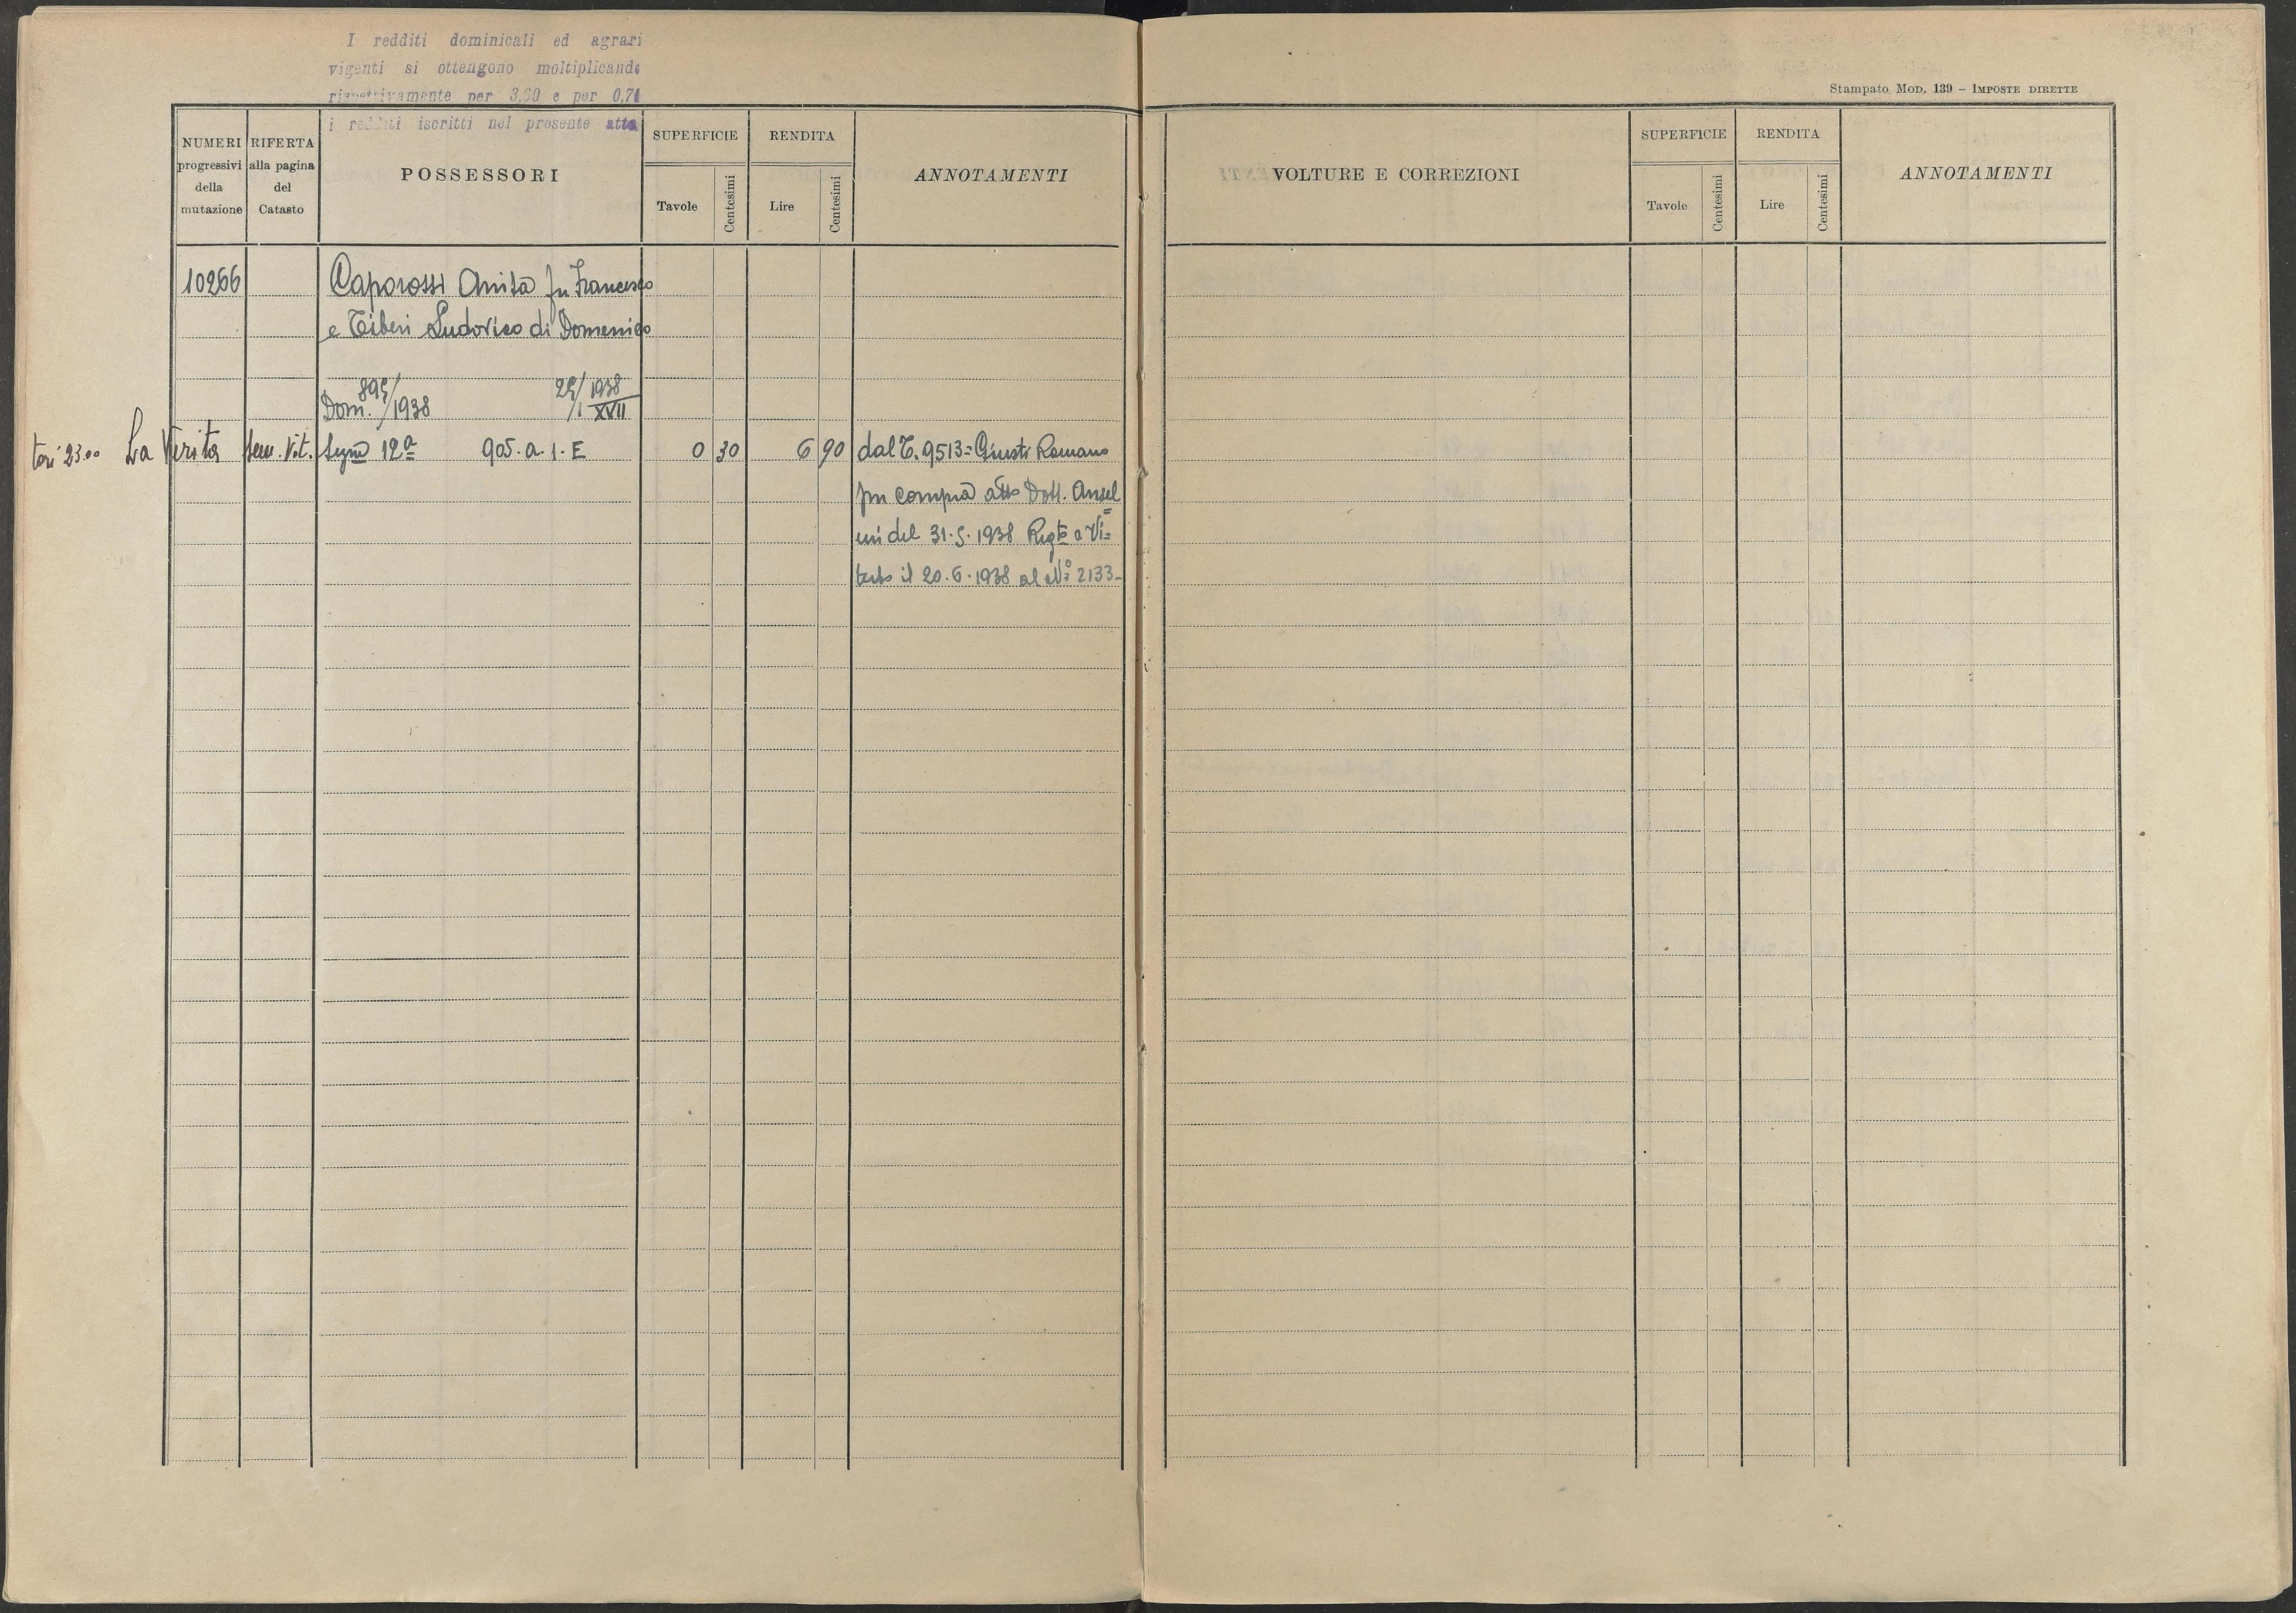 I redditi dominicali ed agrari
vigenti si ottengono moltiplicando
rispettivamente per 3,60 e per 0,71
i redditi iscritti nel presente atto
Stampato Mod. 139 - Imposte dirette
NUMERI progressivi della mutazione
RIFERTA alla pagina del Catasto
POSSESSORI
SUPERFICIE
Tavole
Centesimi
RENDITA
Lire
Centesimi
ANNOTAMENTI
VOLTURE E CORREZIONI
SUPERFICIE
Tavole
Centesimi
RENDITA
Lire
Centesimi
ANNOTAMENTI
10266 Caporossi Anita fu Francesco
e Tiberi Ludovico di Domenico
Dom. 895/1938 25/1 1938/XVII
23.00 La Verita Sem. Vit. Segna 12ª 905.a.1.E 0 30 6 90 dal T. 9513= Giusti Romano
per compra atto Dott. Ansel=
mi del 31.5.1938 Regto a Vi=
terbo il 20.6.1938 al No 2133-